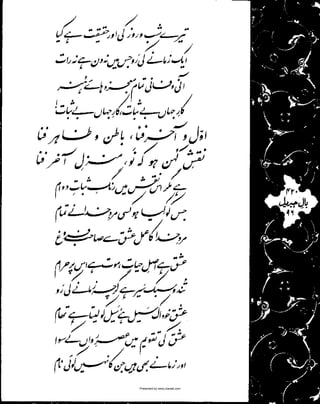 تیرے شب و روز کی اور حقیقت ہے کیا
ایک زمانے کی رو جس میں نہ دن ہے نہ رات
آنی و فانی تمام معجزہ ہائے ہنر
کارِ جہاں بے ثبات، کارِ جہاں بے ثبات
اوّل و آخر فنا، باطن و ظاہر فنا
نقشِ کہن ہو کہ نَو، منزلِ آخر فنا
ہے مگر اس نقش میں رنگِ ثباتِ دوام
جس کو کیا ہو کسی مردِ خدا نے تمام
مردِ خدا کا عمل عشق سے صاحب فروغ
عشق ہے اصلِ حیات، موت ہے اس پر حرام
تند و سبک سیر ہے گرچہ زمانے کی رو
عشق خود اک سیل ہے، سیل کو لیتا ہے تھام
عشق کی تقویم میں عصرِ رواں کے سوا
اور زمانے بھی ہیں جن کا نہیں کوئی نام
۲۲۰
بالِ جبریل
۹۶
Presented by www.ziaraat.com